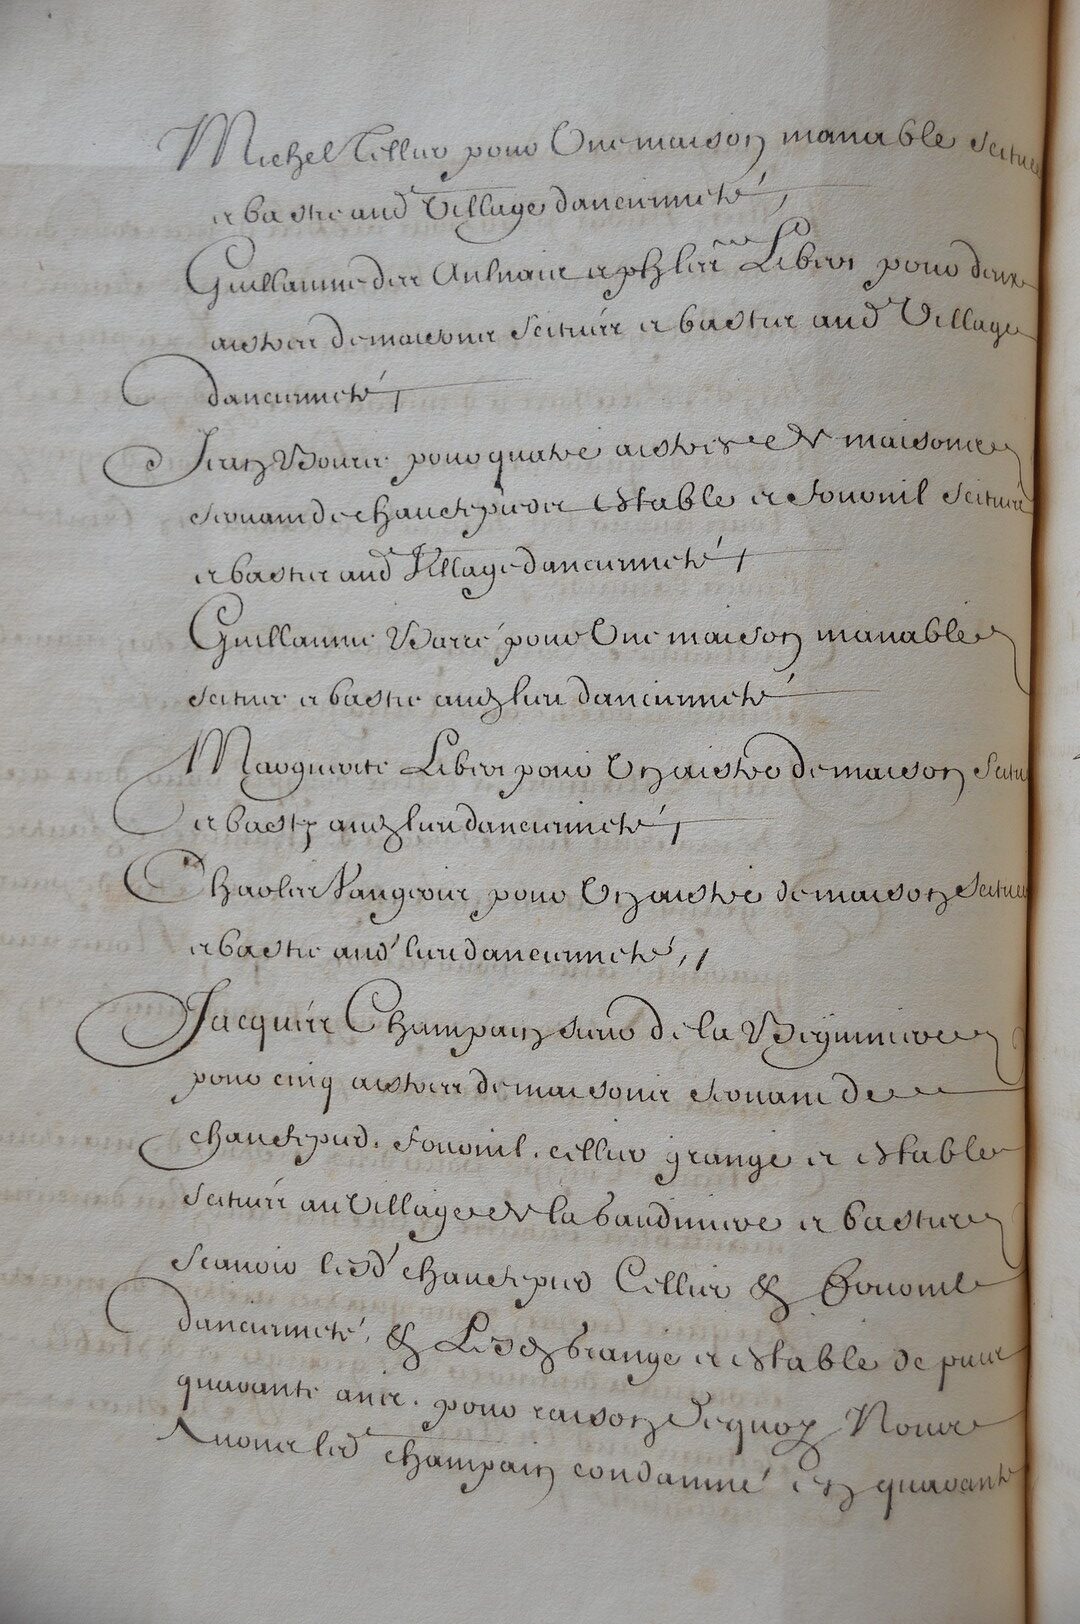 Michel Tellier pour Une maison manable scitue
et bastie aud Village dancienneté,
Guillaume des Aulnais et phles Liberr pour deux
aistres de maisons scitués et bastis aud Village
dancienneté,
Jean Bourie pour quatre aistres de maisons
servant de chauffepieds estable et fournil scitués
et bastis aud Village dancienneté,
Guillaume Barré pour Une maison manable
scitue et bastie audt lieu dancienneté
Marguerite Liberr pour Un aistre de maison scitu
et basty audt lieu dancienneté,
Charles pour Un aistre de maison scitue
et bastie aud lieu dancienneté,
Jacques Champain sieur de la
pour cinq aistres de maisons servant de
chauffepied. fournil. cellier grange et estable
scitués au Village de la baudiniere et bastis
scavoir lesd chauffepied Cellier & fournil
dancienneté, & Lesdt Grange et estable depuis
quarante ans. pour raison dequoy Nous
Avons led Champain condamné en quarante